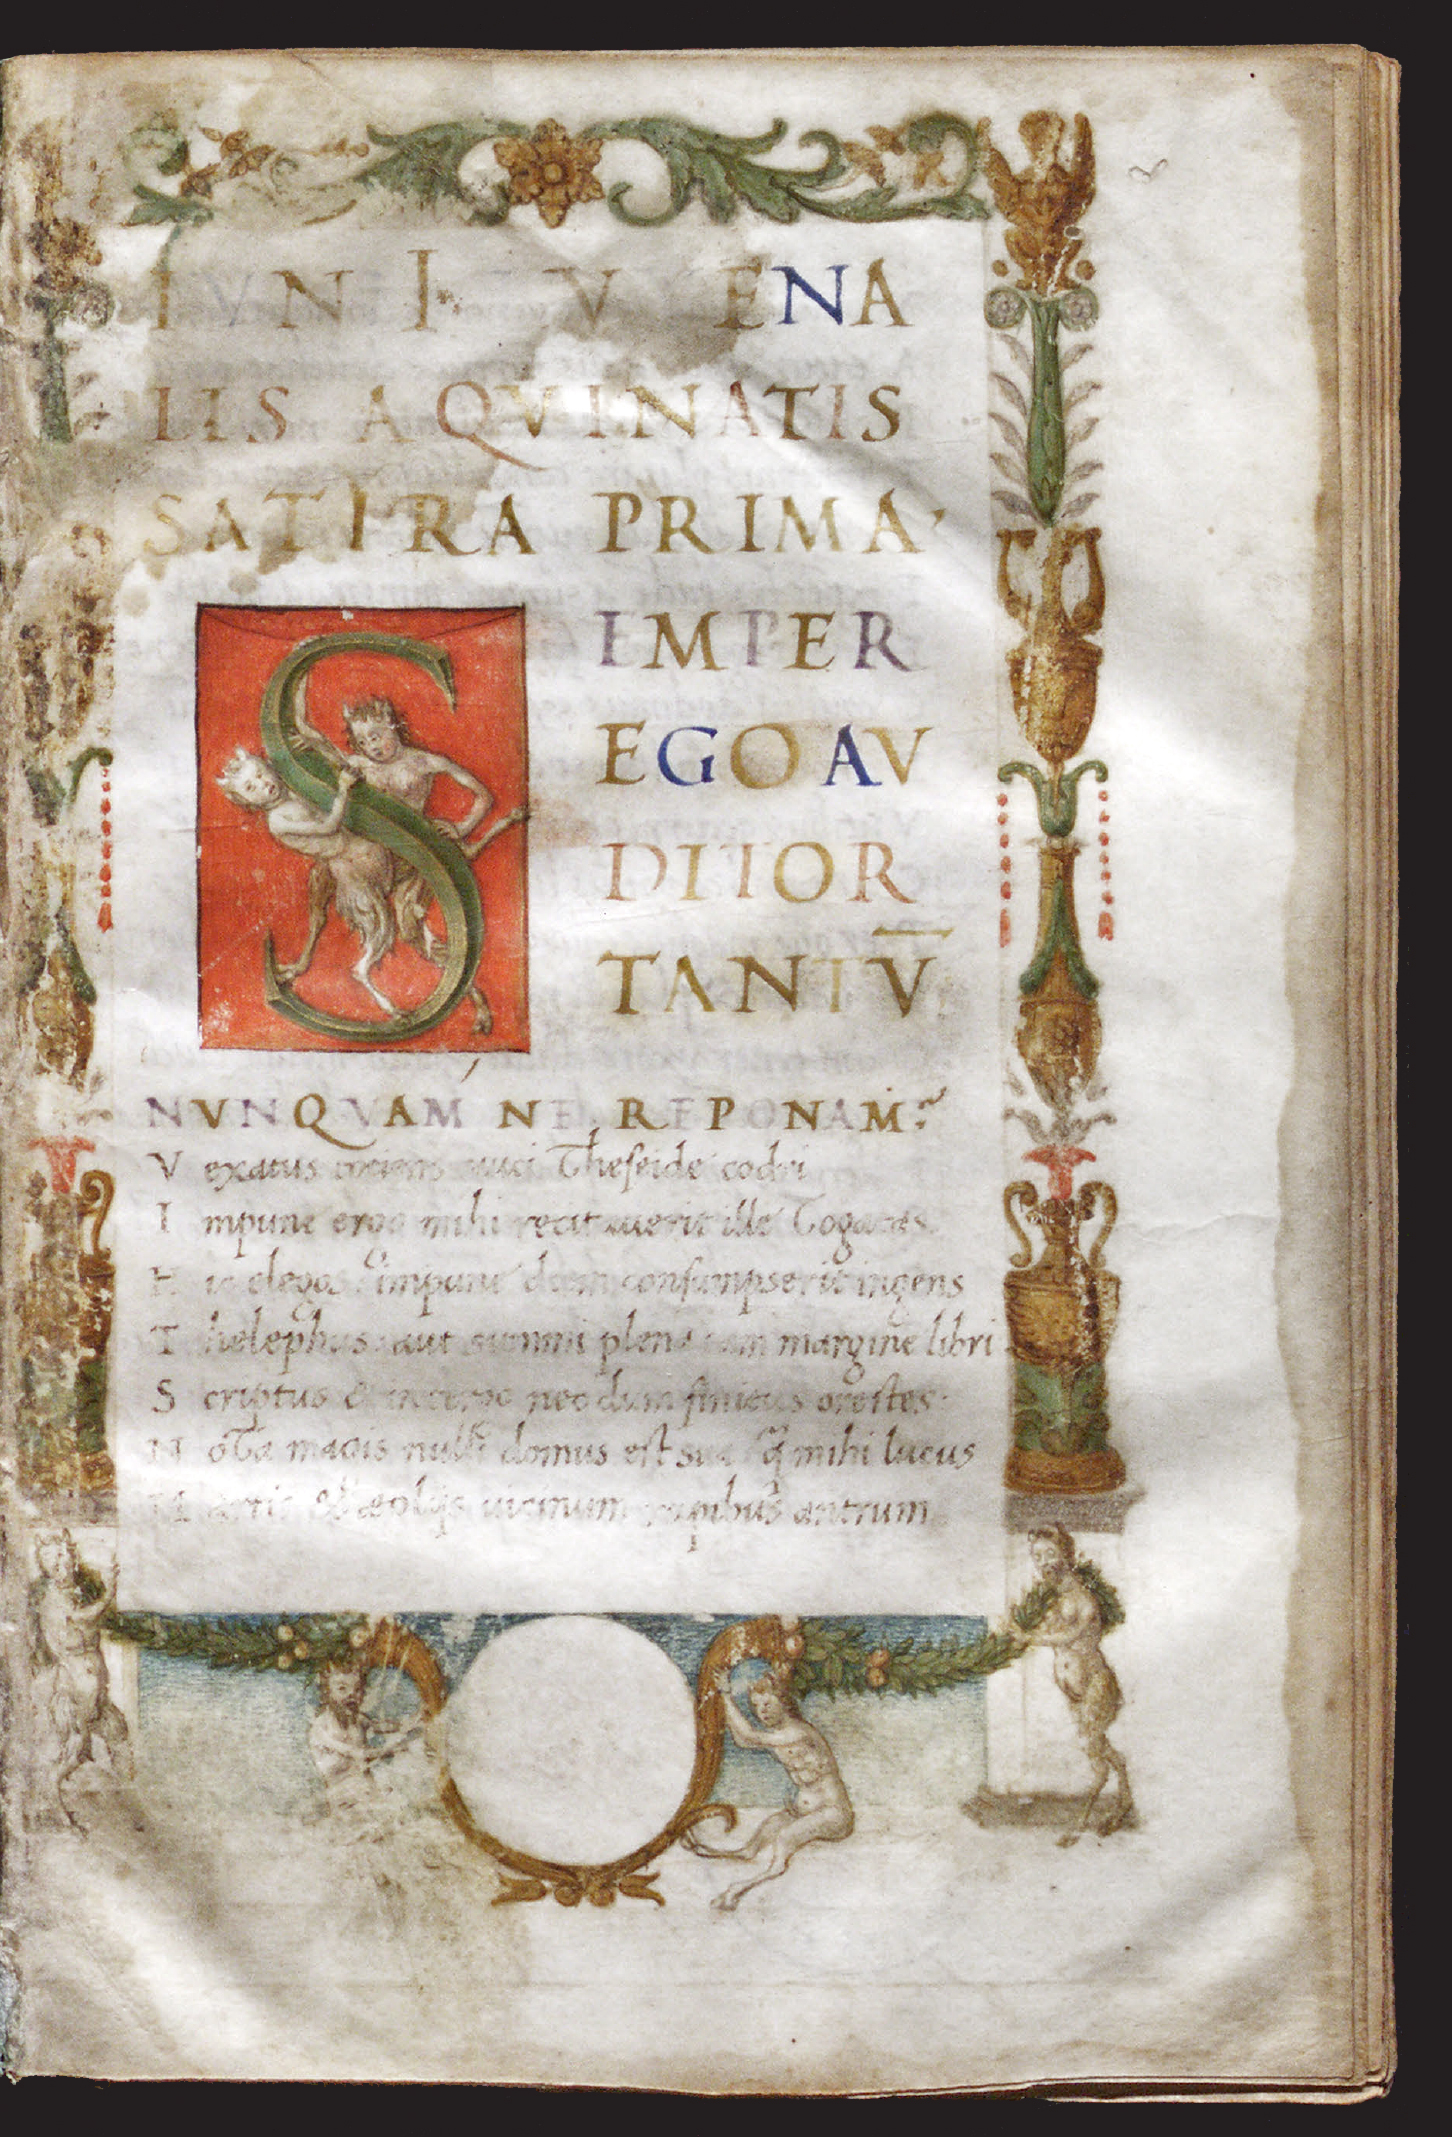 IVNI IVVENA
LIS AQVINATIS
SATIRA PRIMA
SEMPER
EGO AV
DITOR
TANTV̄
NVNQVAM NE REPONAM?
Vexatus totiens rauci Theseide codri
Impune ergo mihi recitauerit ille Togatas
Hic elegos? impune diem consumpserit ingens
Thelephus: aut summi plena iam margine libri
Scriptus & in tergo nec dum finitus orestes.
Nota magis nulli domus est sua q̃ mihi lucus
Martis & æolijs uicinum rupibus antrum